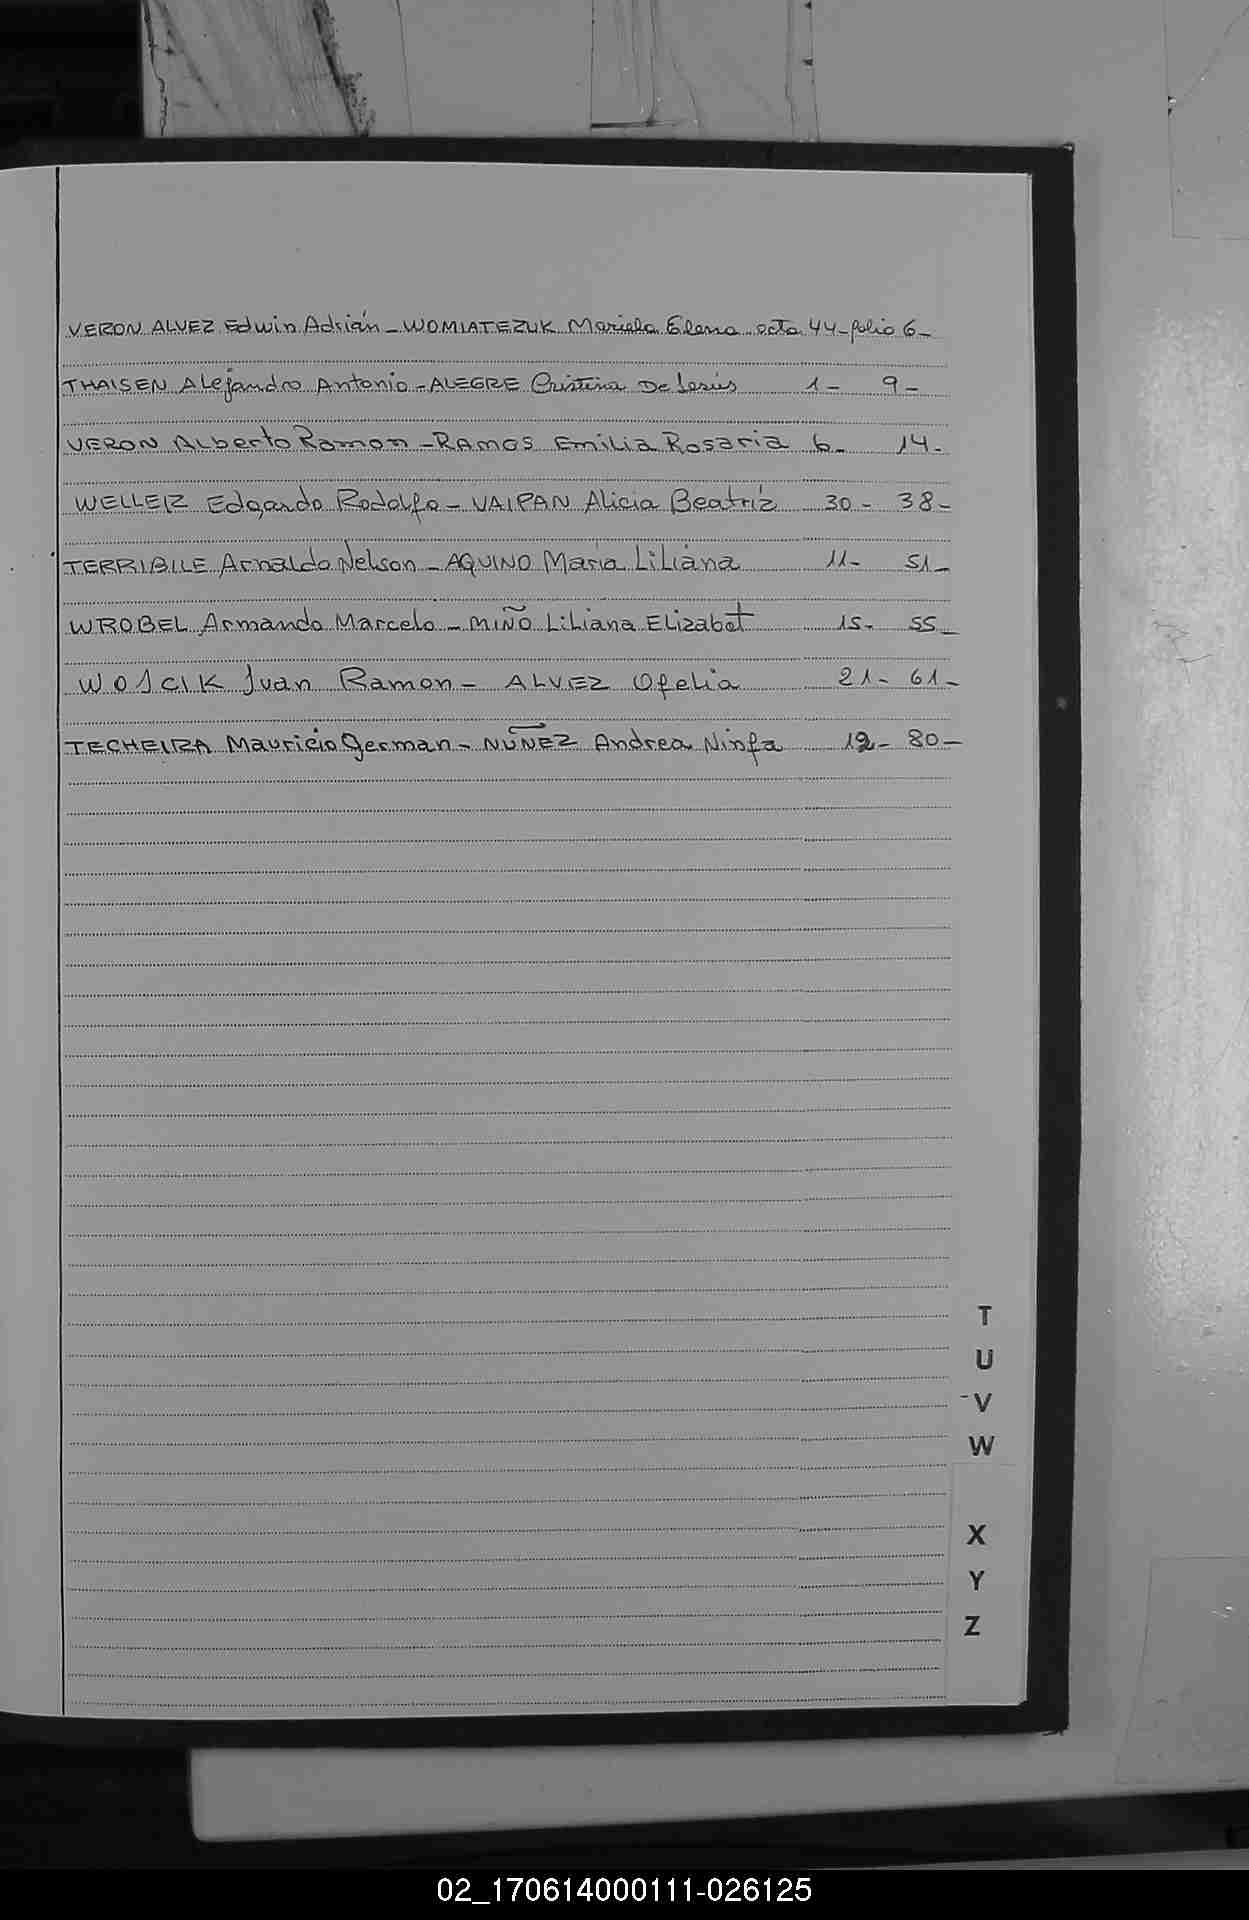 VERON ALVEZ Edwin Adrián - WOMIATEZUK Mariela Elena acta 44 - folio 6 -
THAISEN Alejandro Antonio - ALEGRE Cristina De Jesús 1 - 9 -
VERON Alberto Ramon - RAMOS Emilia Rosaria 6 - 14 -
WELLER Edgardo Rodolfo - VAIPAN Alicia Beatriz 30 - 38 -
TERRIBILE Arnaldo Nelson - AQUINO María Liliana 11 - 51 -
WROBEL Armando Marcelo - MIÑO Liliana Elizabet 15 - 55 -
WOJCIK Juan Ramon - ALVEZ Ofelia 21 - 61 -
TECHEIRA Mauricio German - NUÑEZ Andrea Ninfa 12 - 80 -
T
U
V
W
X
Y
Z
02_170614000111-026125